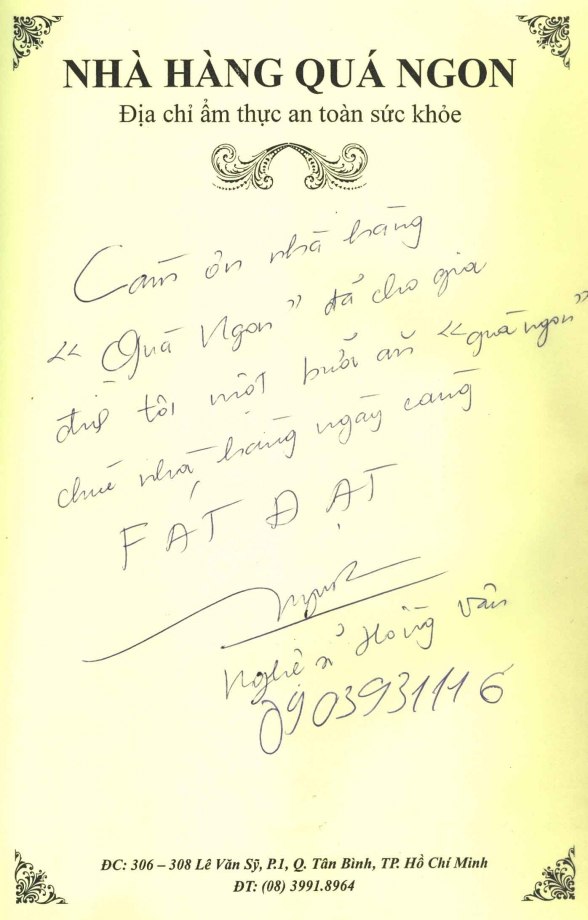 NHÀ HÀNG QUÁ NGON
Địa chỉ ẩm thực an toàn sức khỏe
Cám ơn nhà hàng
“ Quá Ngon ” đã cho gia
đình tôi một buổi ăn “quá ngon”
chúc nhà hàng ngày càng
FÁT ĐẠT
Nghệ sĩ Hồng Vân
0903931116
ĐC: 306 – 308 Lê Văn Sỹ, P.1, Q. Tân Bình, TP. Hồ Chí Minh
ĐT: (08) 3991.8964